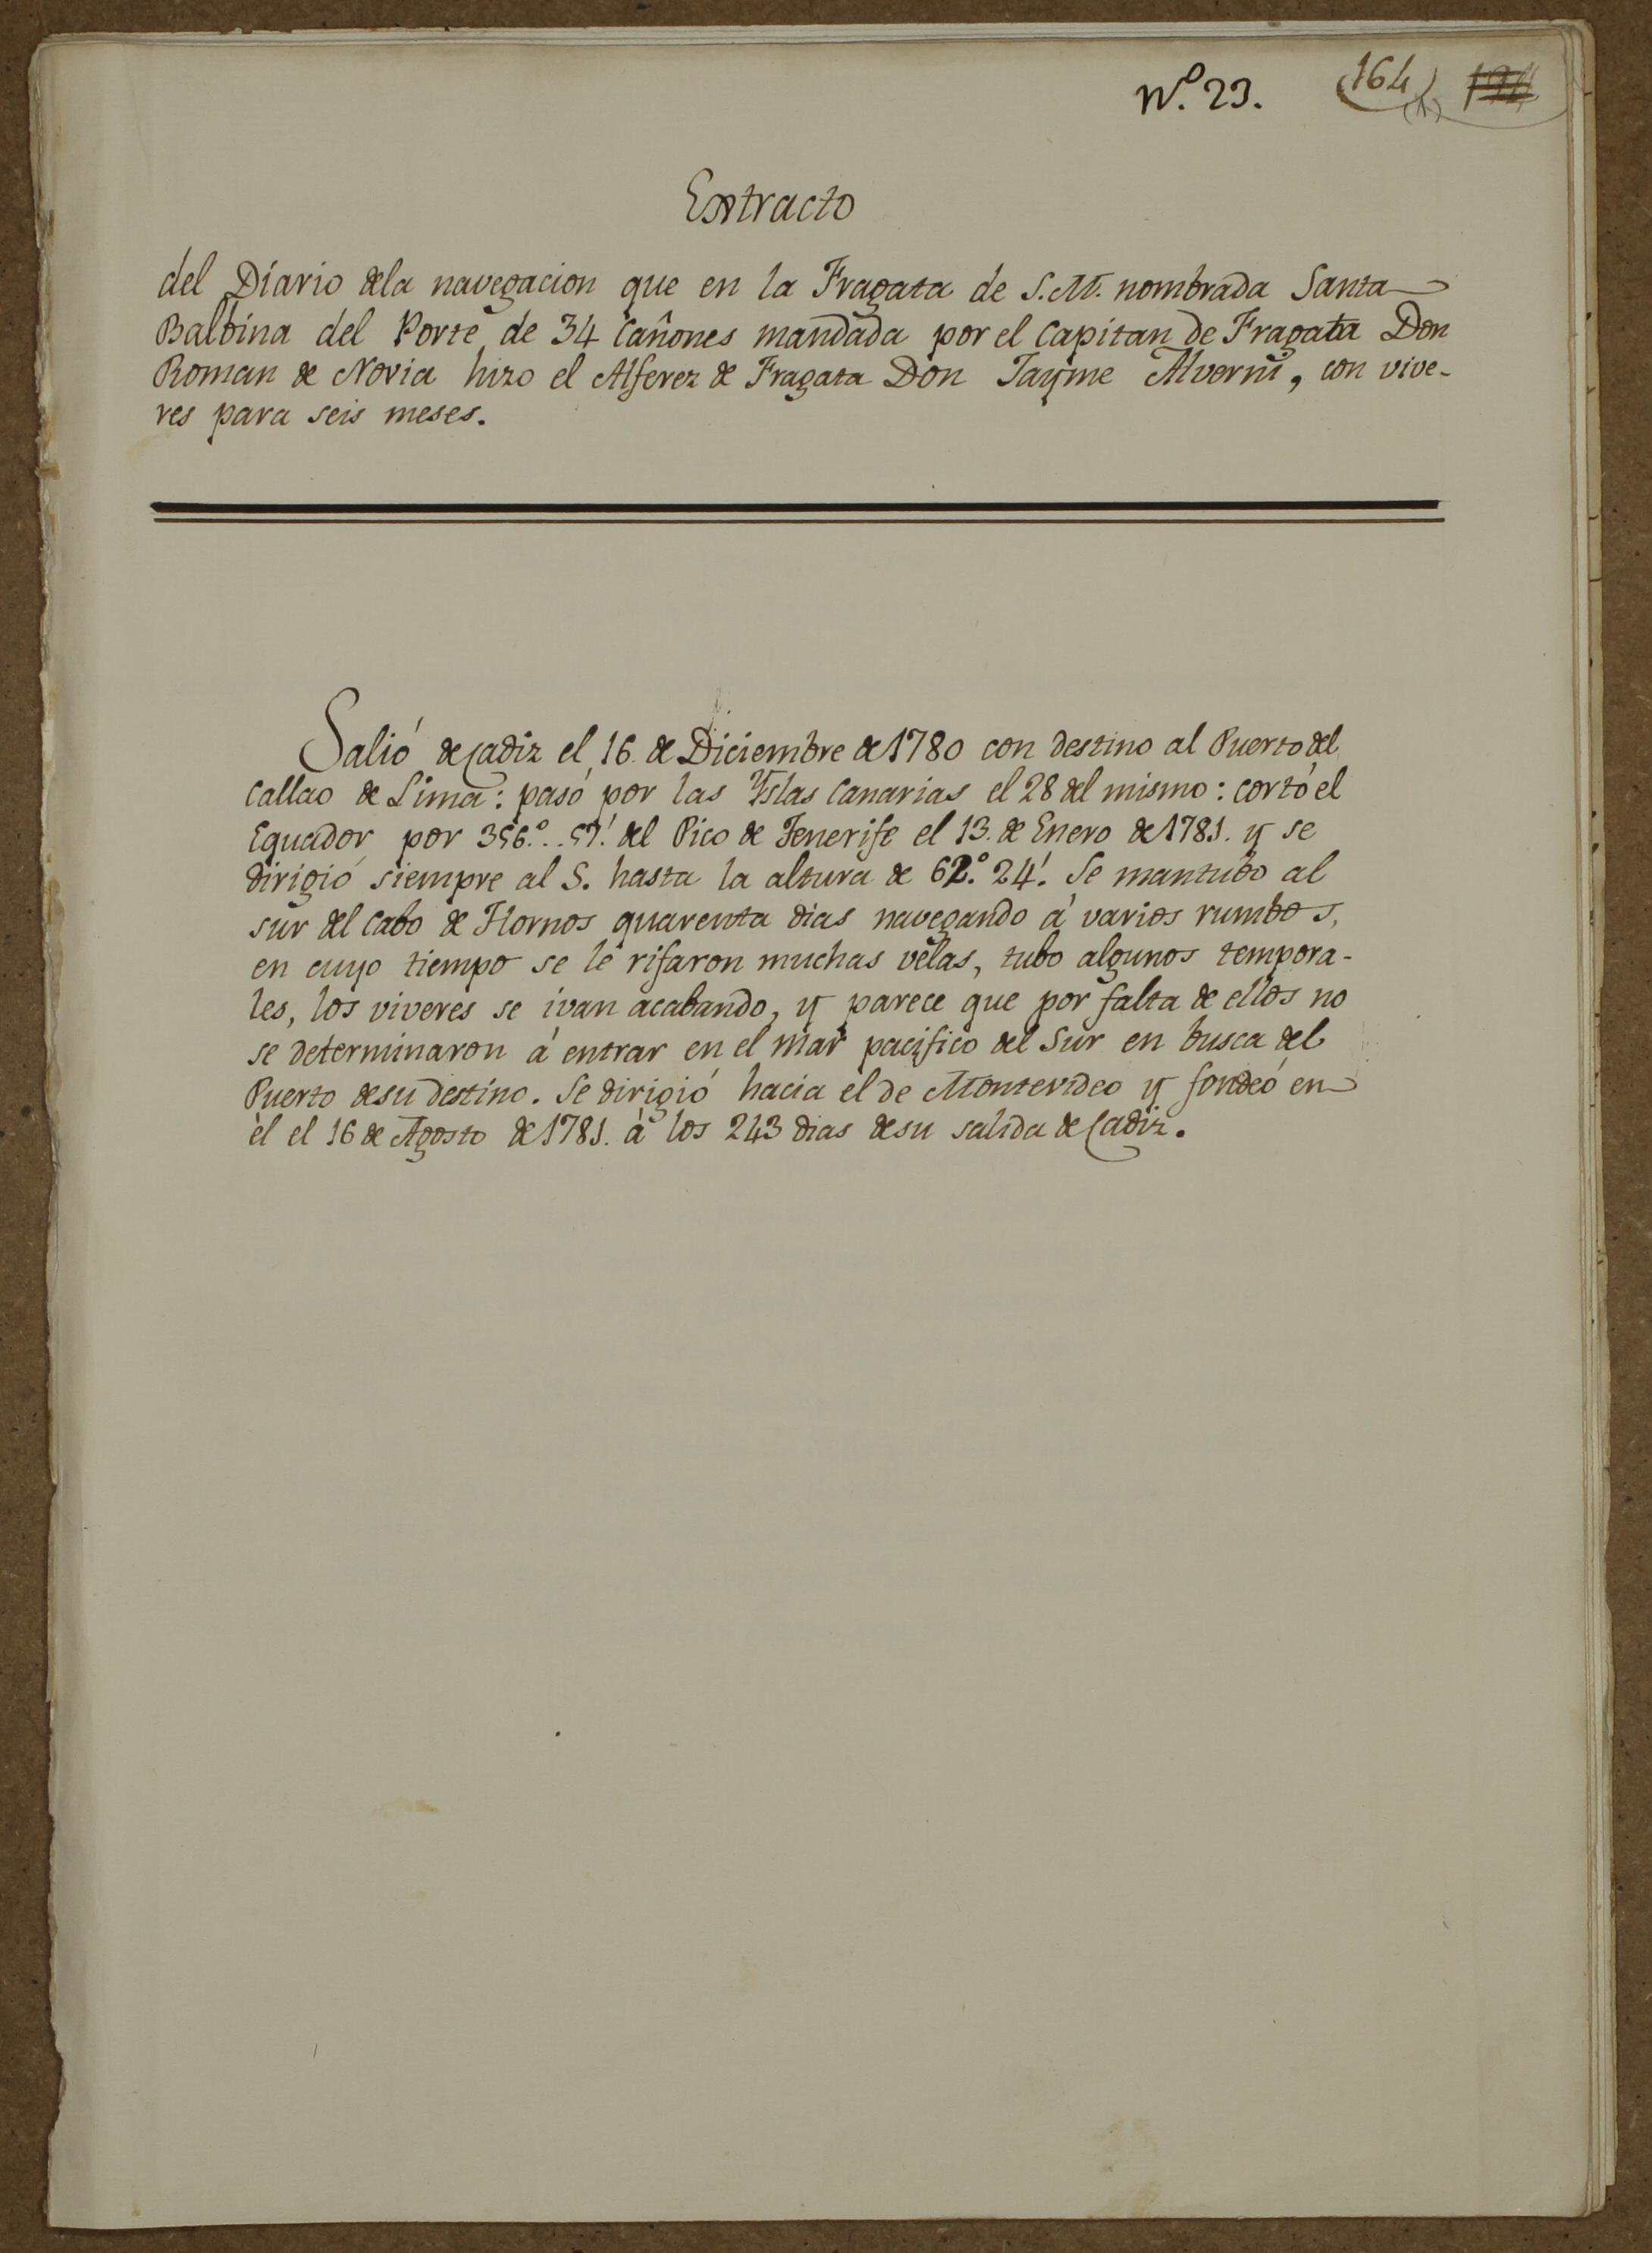 Nº. 23. (164)
Extracto
del Diario dela navegacion que en la Fragata de S.M. nombrada Santa
Balbina del Porte de 34 Cañones mandada por el Capitan de Fragata Don
Roman de Novia hizo el Alferez de Fragata Don Jayme Alverni, con vive-
res para seis meses.
Salió de Cadiz el 16. de Diciembre de 1780 con destino al Puerto del
Callao de Lima: pasó por las Yslas Canarias el 28 del mismo: cortó el
Equador por 356.° .. 57.' del Pico de Tenerife el 13. de Enero de 1781. y se
dirigió siempre al S. hasta la altura de 62.° 24.' Se mantubo al
sur del Cabo de Hornos quarenta dias navegando á varios rumbos,
en cuyo tiempo se le rifaron muchas velas, tubo algunos tempora-
les, los viveres se ivan acabando, y parece que por falta de ellos no
se determinaron á entrar en el mar pacifico del Sur en busca del
Puerto desu destino. Se dirigió hacia el de Montevideo y fondeó en
él el 16 de Agosto de 1781. á los 243 dias desu salida de Cadiz.